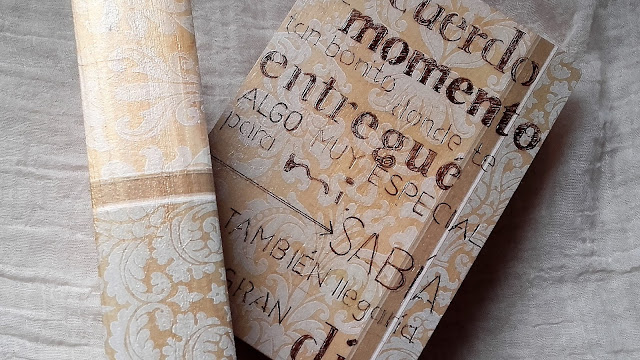 cuerdo
momento
tan bonito donde te
entregué
ALGO MUY ESPECIAL
para mi.
SABÍA
TAMBIÉN llegaría
GRAN
dí